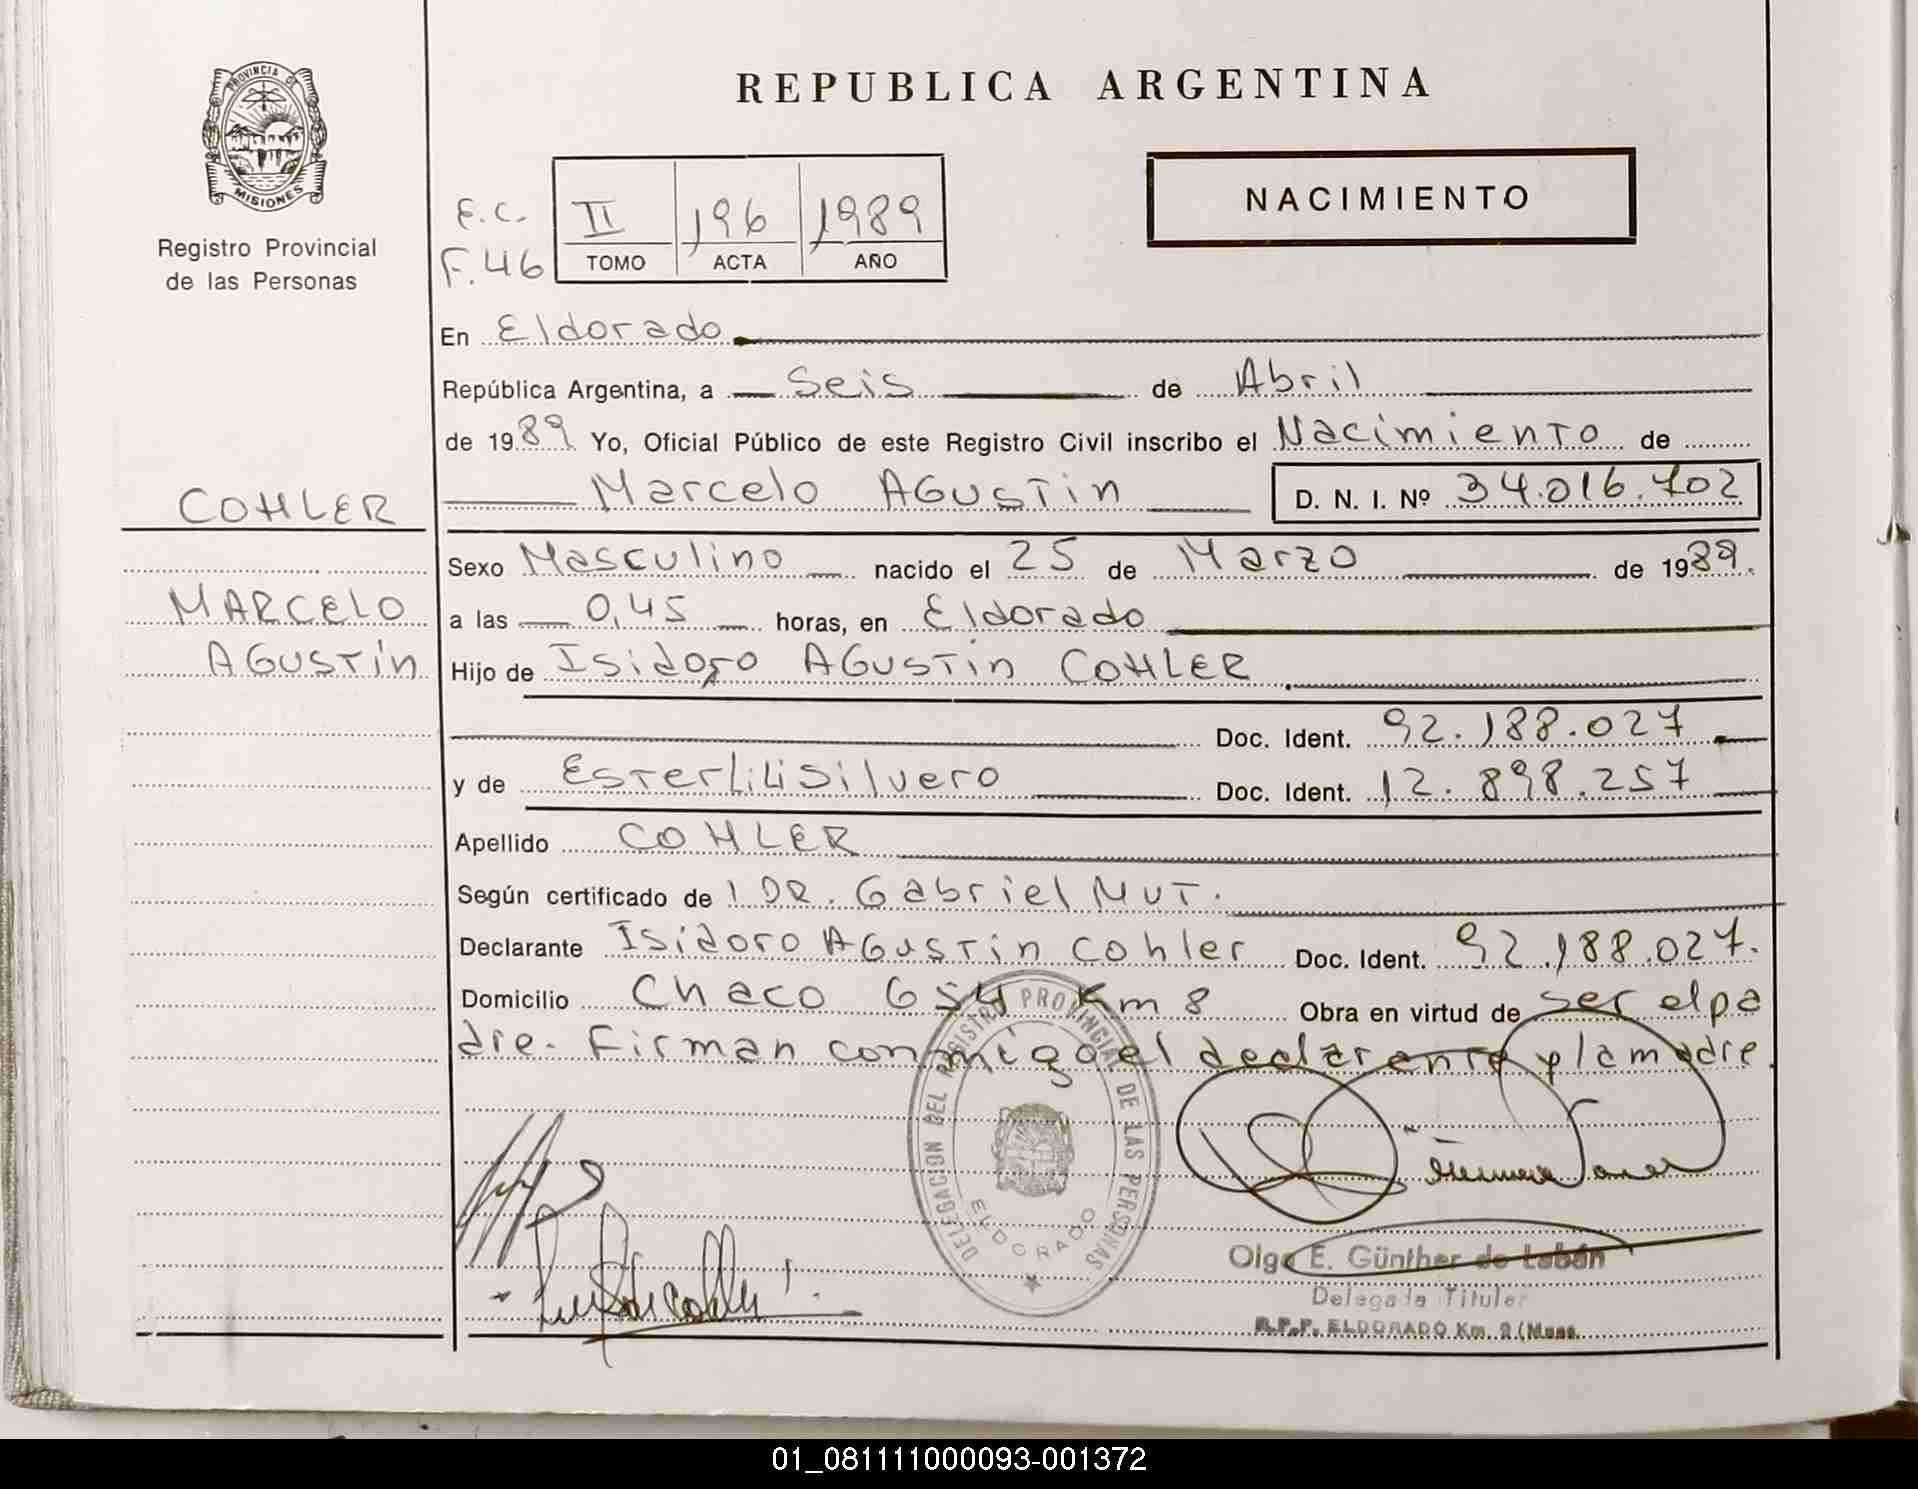 PROVINCIA DE
MISIONES
Registro Provincial
de las Personas
REPUBLICA ARGENTINA
NACIMIENTO
E.C.
F. 46
II 196 1989
TOMO ACTA AÑO
En Eldorado
República Argentina, a Seis de Abril
de 1989 Yo, Oficial Público de este Registro Civil inscribo el Nacimiento de
Marcelo AGUSTin D. N. I. Nº 34.016.702
COHLER
MARCELO
AGUSTín
Sexo Masculino nacido el 25 de Marzo de 1989.
a las 0,45 horas, en Eldorado
Hijo de Isidoro AGUSTin COHLER
Doc. Ident. 92.188.027
y de Ester Lili Silvero Doc. Ident. 12.898.257
Apellido COHLER
Según certificado de l DR. Gabriel MUT.
Declarante Isidoro AGUSTin Cohler Doc. Ident. 92.188.027.
Domicilio Chaco 654 Km 8 Obra en virtud de ser el pa
dre. Firman conmigo el declarante y la madre.
DELEGACION DEL REGISTRO PROVINCIAL DE LAS PERSONAS
ELDORADO
Olga E. Günther de Labán
Delegada Titular
R.P.P. ELDORADO Km. 9 (Mnes.
01_081111000093-001372